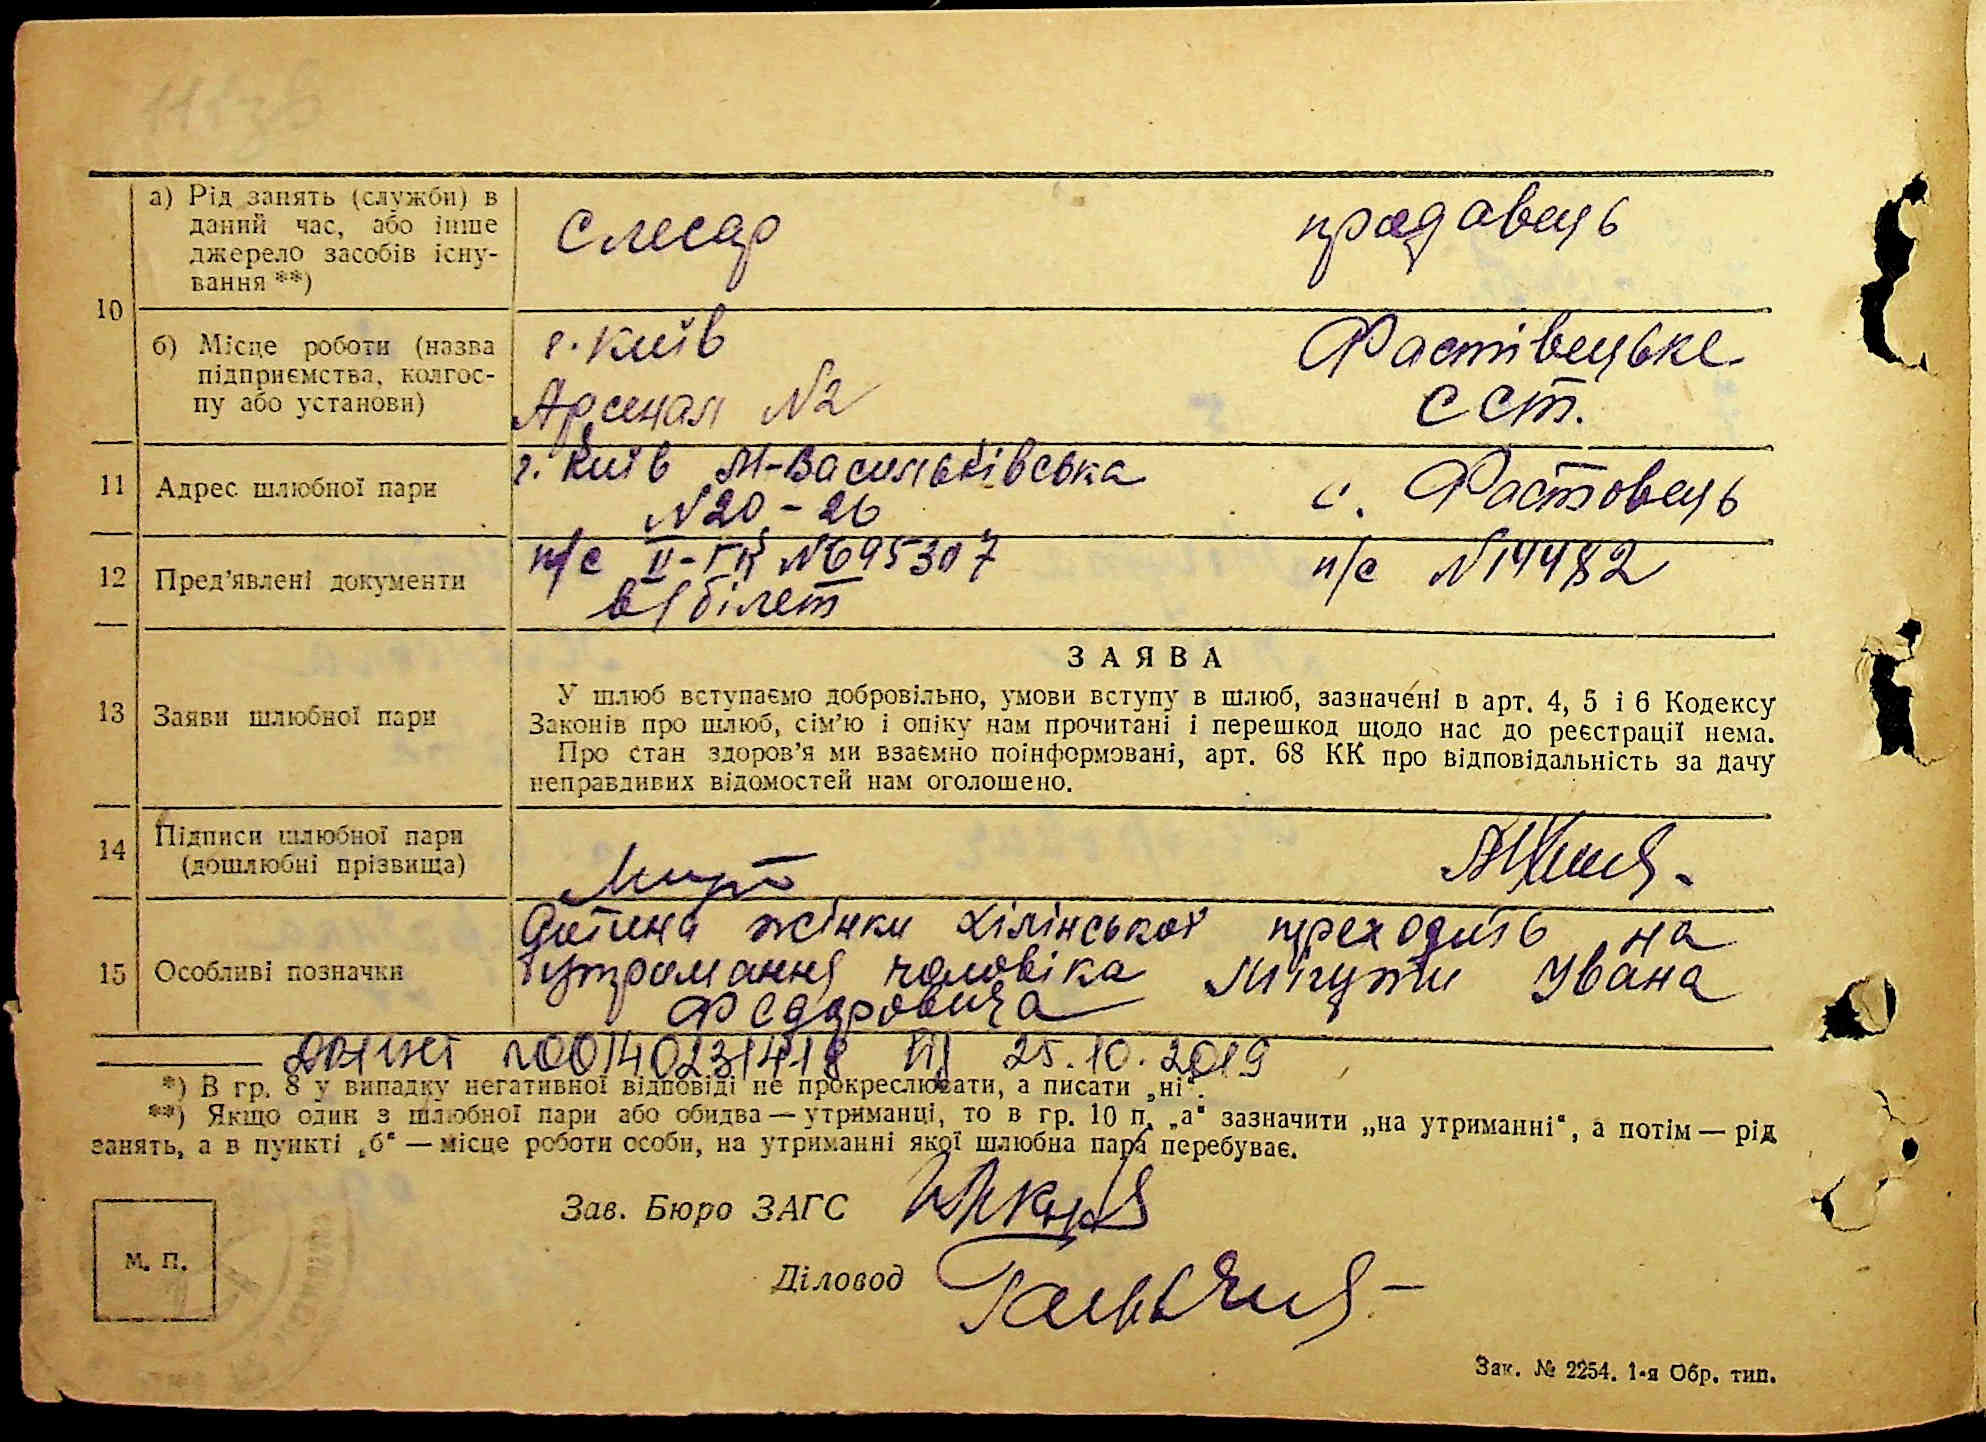 а) Рід занять (служби) в
даний час, або інше
джерело засобів існу-
вання **)
Слесар
продавець
10
б) Місце роботи (назва
підприємства, колгос-
пу або установи)
г. Київ
Арсенал №2
Фастівецьке
ССТ.
11
Адрес шлюбної пари
г. Київ М-Васильківська
№20-26
с. Фастовець
12
Пред'явлені документи
п/с II-ГК №695307
в/білет
п/с №14482
13
Заяви шлюбної пари
ЗАЯВА
У шлюб вступаємо добровільно, умови вступу в шлюб, зазначені в арт. 4, 5 і 6 Кодексу
Законів про шлюб, сім'ю і опіку нам прочитані і перешкод щодо нас до реєстрації нема.
Про стан здоров'я ми взаємно поінформовані, арт. 68 КК про відповідальність за дачу
неправдивих відомостей нам оголошено.
14
Підписи шлюбної пари
(дошлюбні прізвища)
15
Особливі позначки
Дитина жінки переходить на
утримання чоловіка Мігути Ивана
Федоровича
25.10.2019
*) В гр. 8 у випадку негативної відповіді не прокреслювати, а писати „ні".
**) Якщо один з шлюбної пари або обидва — утриманці, то в гр. 10 п. „а" зазначити „на утриманні", а потім — рід
занять, а в пункті „б" — місце роботи особи, на утриманні якої шлюбна пара перебуває.
Зав. Бюро ЗАГС
Діловод
М. П.
Зак. № 2254. 1-я Обр. тип.